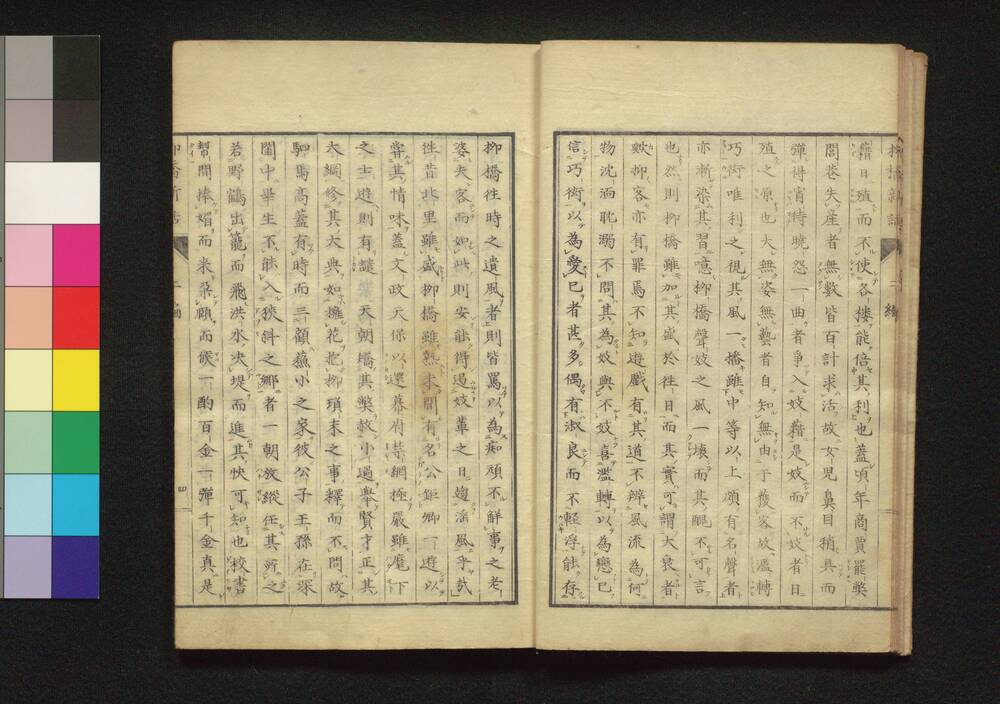 籍日殖而不使各摟能倍其利也蓋頃年商賈罷獘
閭巷失産者無數皆百計求活故女児鼻目稍具而
彈得宵待曉怨一曲者爭入妓籍是妓而不妓者日
殖之原也夫無姿無藝者自知無由于獲客故濫轉
巧衒唯利之視其風一播雖中等以上頗有名聲者
亦漸染其習噫柳橋聲妓之風一壊而其醜不可言
也然則柳橋雖加其盛於往日而其實可謂大衰者
歟抑客亦有罪焉不知遊戲有其道不辨風流為何
物沈湎耽溺不問其為妓與不妓喜濫轉以為戀己
信巧衒以為愛己者甚多偶有淑良而不輕浮能存
柳橋往時之遺風者則皆罵以為痴頑不觧事之老
婆夫客而如此則安能得遏妓輩之日趨滛風乎哉
往昔北里雖盛柳橋雖熱未聞有名公鉅卿一遊以
甞其情味蓋文政天保以還幕府禁網極嚴雖麾下
之士遊則有譴 天朝矯其獘赦小過擧賢才正其
大綱修其大典如擁花抱柳瑣末之事釋而不問故
駟馬髙蓋有時而三顧蘇小之家彼公子王孫在深
閨中畢生不能入狹斜之鄉者一朝放縱任其所之
若野鶴出籠而飛洪水决堤而進其快可知也校書
幇間捧媚而来朶頤而候一酌百金一彈千金真是
二編
四